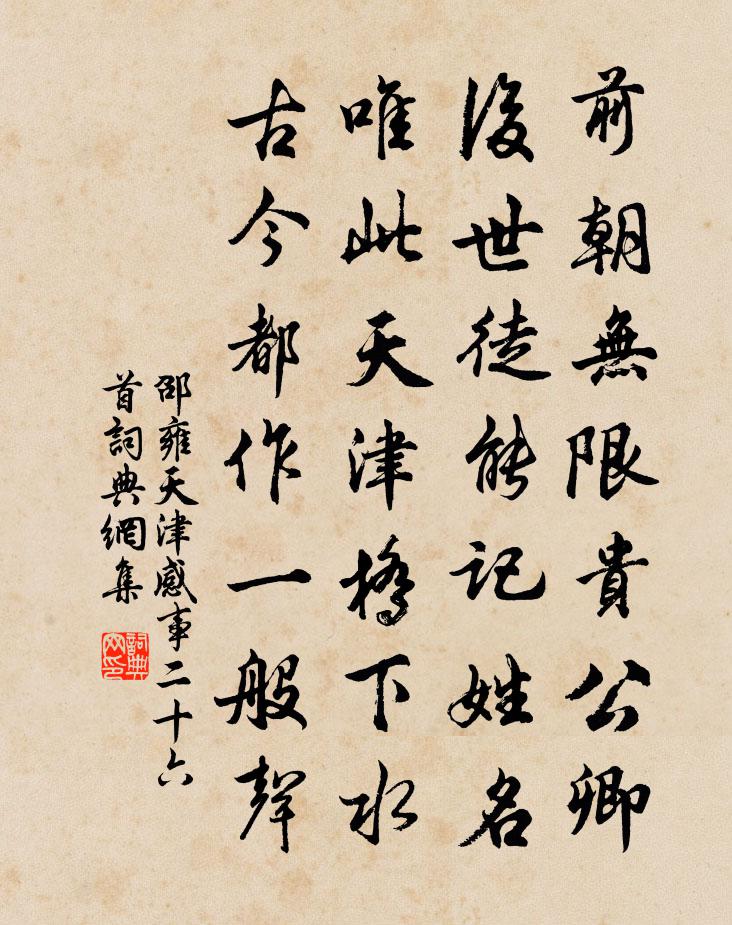 前朝無限貴公卿
後世徒能記姓名
唯此天津橋下水
古今都作一般聲
邵雍天津感事二十六
首詞典網集
詞典
网印